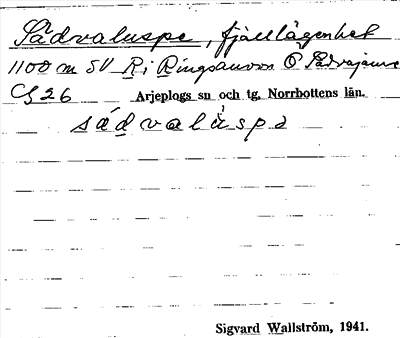 Sädvaluspe, fjällägenhet
1100 m SV R i Ringsauvon Ö Sädvajaure
G 26 Arjeplogs sn och tg, Norrbottens län.
sádvalu̇spə
Sigvard Wallström, 1941.